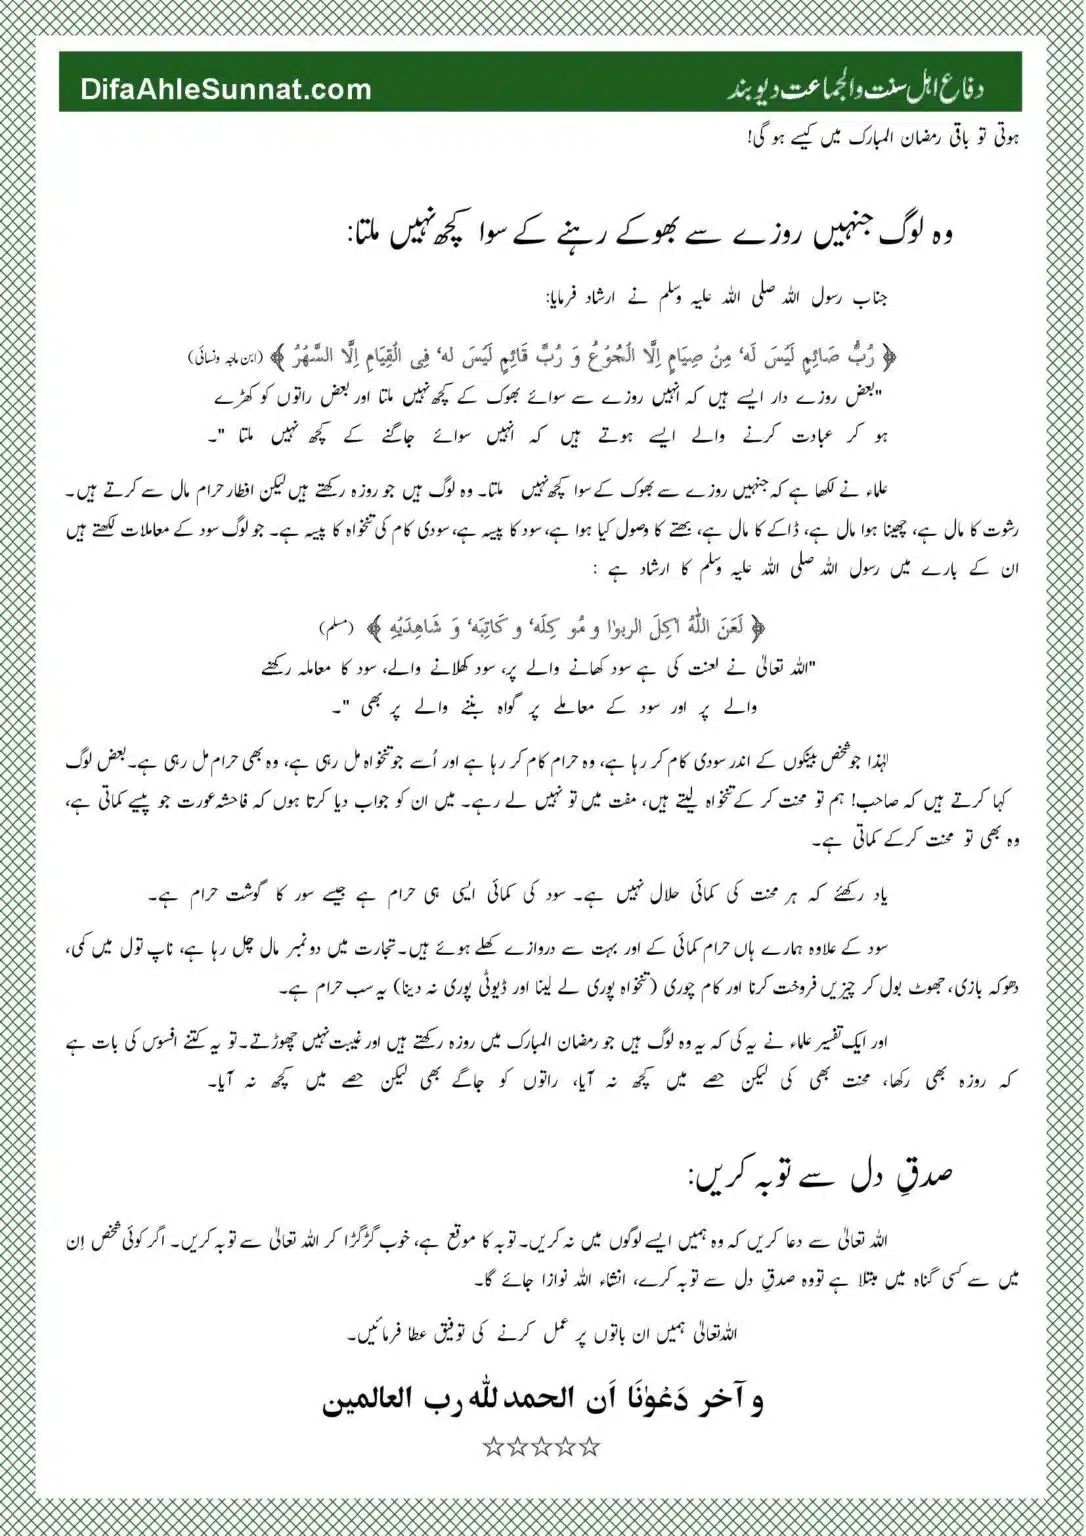 DifaAhleSunnat.com
دفاع اہل سنت والجماعت دیوبند
ہوتی تو باقی رمضان المبارک میں کیسے ہو گی!
وہ لوگ جنہیں روزے سے بھوکے رہنے کے سوا کچھ نہیں ملتا:
جناب رسول اللہ صلی اللہ علیہ وسلم نے ارشاد فرمایا:
﴿ رُبَّ صَائِمٍ لَیْسَ لَہٗ مِنْ صِیَامٍ اِلَّا الْجُوْعُ وَ رُبَّ قَائِمٍ لَیْسَ لہٗ فِی الْقِیَامِ اِلَّا السَّھْرُ ﴾ (ابن ماجہ ونسائی)
"بعض روزے دار ایسے ہیں کہ انہیں روزے سے سوائے بھوک کے کچھ نہیں ملتا اور بعض راتوں کو کھڑے
ہو کر عبادت کرنے والے ایسے ہوتے ہیں کہ انہیں سوائے جاگنے کے کچھ نہیں ملتا "۔
علماء نے لکھا ہے کہ جنہیں روزے سے بھوک کے سوا کچھ نہیں ملتا۔ وہ لوگ ہیں جو روزہ رکھتے ہیں لیکن افطار حرام مال سے کرتے ہیں۔
رشوت کا مال ہے، چھینا ہوا مال ہے، ڈاکے کا مال ہے، بھتے کا وصول کیا ہوا ہے، سود کا پیسہ ہے، سودی کام کی تنخواہ کا پیسہ ہے۔ جو لوگ سود کے معاملات لکھتے ہیں
ان کے بارے میں رسول اللہ صلی اللہ علیہ وسلم کا ارشاد ہے :
﴿ لَعَنَ اللّٰہُ اٰکِلَ الربوٰا و مُو کِلَہٗ و کَاتِبَہٗ وَ شَاھِدَیْہِ ﴾ (مسلم)
"اللہ تعالیٰ نے لعنت کی ہے سود کھانے والے پر، سود کھلانے والے، سود کا معاملہ رکھنے
والے پر اور سود کے معاملے پر گواہ بننے والے پر بھی "۔
لہٰذا جو شخص بینکوں کے اندر سودی کام کر رہا ہے، وہ حرام کام کر رہا ہے اور اُسے جو تنخواہ مل رہی ہے، وہ بھی حرام مل رہی ہے۔ بعض لوگ
کہا کرتے ہیں کہ صاحب! ہم تو محنت کر کے تنخواہ لیتے ہیں، مفت میں تو نہیں لے رہے۔ میں ان کو جواب دیا کرتا ہوں کہ فاحشہ عورت جو پیسے کماتی ہے،
وہ بھی تو محنت کرکے کماتی ہے۔
یاد رکھئے کہ ہر محنت کی کمائی حلال نہیں ہے۔ سود کی کمائی ایسی ہی حرام ہے جیسے سور کا گوشت حرام ہے۔
سود کے علاوہ ہمارے ہاں حرام کمائی کے اور بہت سے دروازے کھلے ہوئے ہیں۔ تجارت میں دو نمبر مال چل رہا ہے، ناپ تول میں کمی،
دھوکہ بازی، جھوٹ بول کر چیزیں فروخت کرنا اور کام چوری (تنخواہ پوری لے لینا اور ڈیوٹی پوری نہ دینا) یہ سب حرام ہے۔
اور ایک تفسیر علماء نے یہ کی کہ یہ وہ لوگ ہیں جو رمضان المبارک میں روزہ رکھتے ہیں اور غیبت نہیں چھوڑتے۔ تو یہ کتنے افسوس کی بات ہے
کہ روزہ بھی رکھا، محنت بھی کی لیکن حصے میں کچھ نہ آیا، راتوں کو جاگے بھی لیکن حصے میں کچھ نہ آیا۔
صدقِ دل سے توبہ کریں:
اللہ تعالیٰ سے دعا کریں کہ وہ ہمیں ایسے لوگوں میں نہ کریں۔ توبہ کا موقع ہے، خوب گڑگڑا کر اللہ تعالیٰ سے توبہ کریں۔ اگر کوئی شخص اِن
میں سے کسی گناہ میں مبتلا ہے تو وہ صدقِ دل سے توبہ کرے، انشاء اللہ نوازا جائے گا۔
اللہ تعالیٰ ہمیں ان باتوں پر عمل کرنے کی توفیق عطا فرمائیں۔
و آخر دَعْوٰنَا اَن الحمد للّٰہ رب العالمین
☆☆☆☆☆